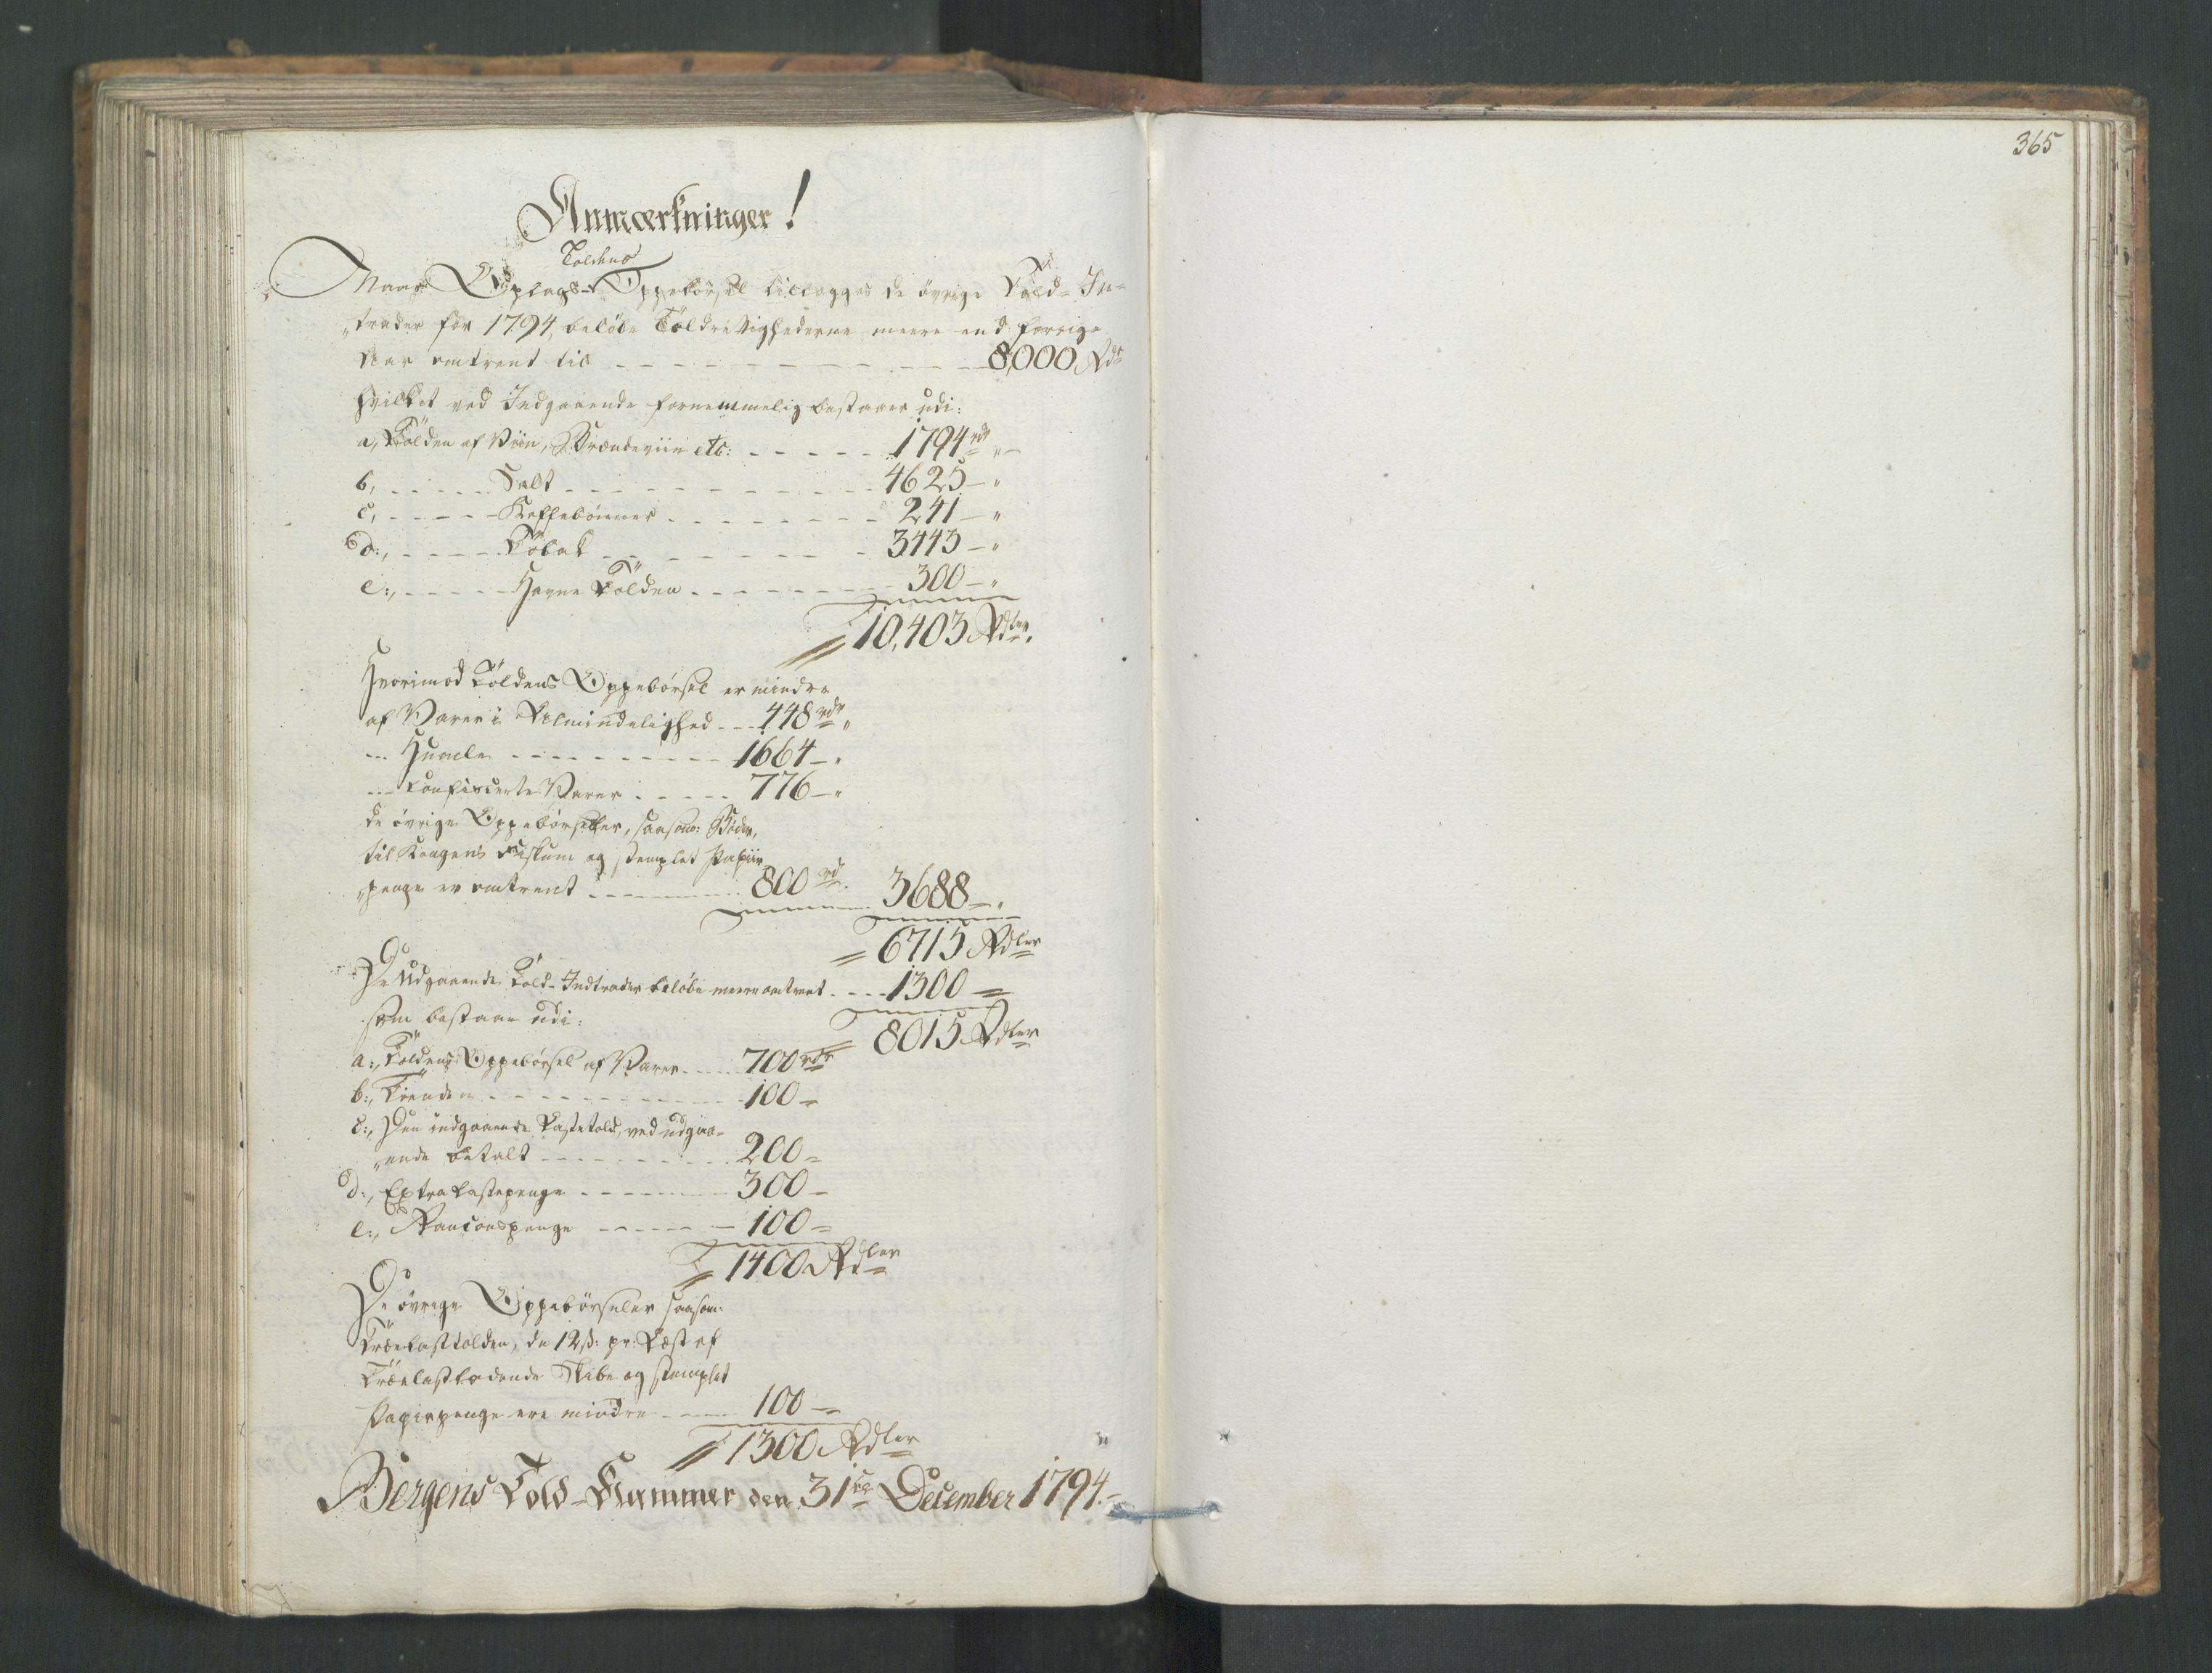 Anmærkninger!
Toldens
Naar Oplags-Oppebörsel tillægges de övrige Told-In-
"trader for 1794, belöbe Toldrettighederne meere end forrige
Aar omtrent til - - - 8,000 Rdr
hvilket ved Indgaaende fornemmelig bestaaer udi:
a, Tolden af Viin, Brændeviin etc: - - - 1794 rdr "
b, - - - Salt - - - 4625 - "
c, - - - Kaffebönner - - - 241 - "
d:, - - - Tobak - - - 3443 - "
e:, - - - Havne Tolden - - - 300 - "
10,403 Rdler.
Hvorimod Toldens Oppebörsel er mindre
af Varer i Almindelighed - - 448 rdr "
- - - 1664 - "
- - Confiscerte Varer - - - 776 - "
de övrige Oppebörseler, saasom: Böder,
til Kongens Fiskum og stemplet Papiir
"penge er omtrent - - - 800 rd. 3688 - "
6715 Rdler
De Udgaaende Told-Indtrader belöbe meere omtrent - - - 1300 =
som bestaae udi:
8015 Rdler
a:, Toldens Oppebörsel af Varer - - - 700 rdr
b:, Tiende - - - 100 -
c:, Den indgaaende Lastetold, ved udgaa-
"ende betalt - - - 200 -
d:, Extra Lastepenge - - - 300 -
e:, Ranconspenge - - - 100 -
1400 Rdler
De övrige Oppebörseler saasom:
Trælasttolden, de 12 ß: pr: Læst af
Trælastladende Skibe og stemplet
Papirpenge ere mindre - - - 100 -
1300 Rdler
Bergens Told-Kammer den 31te December 1794.
365